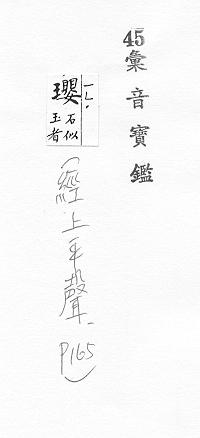 45彙音寶鑑
一ㄥ.
瓔 石似玉者
(經上平聲. P165)